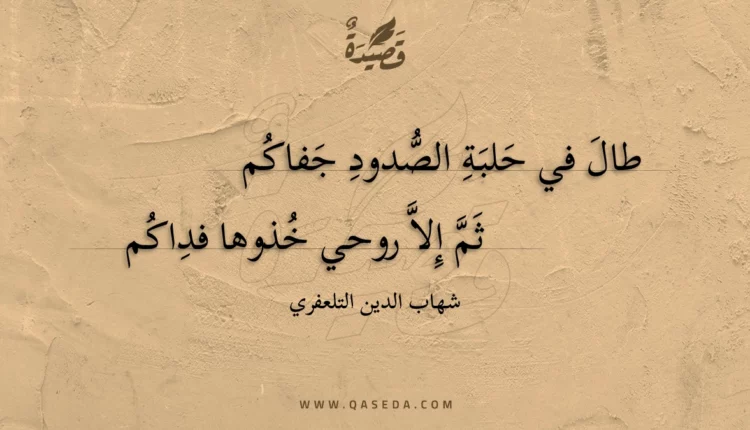 قَصِيْدَةٌ
طالَ في حَلبَةِ الصُّدودِ جَفاكُم
ثَمَّ إِلاَّ روحي خُذوها فدِاكُم
شهاب الدين التلعفري
WWW.QASEDA.COM